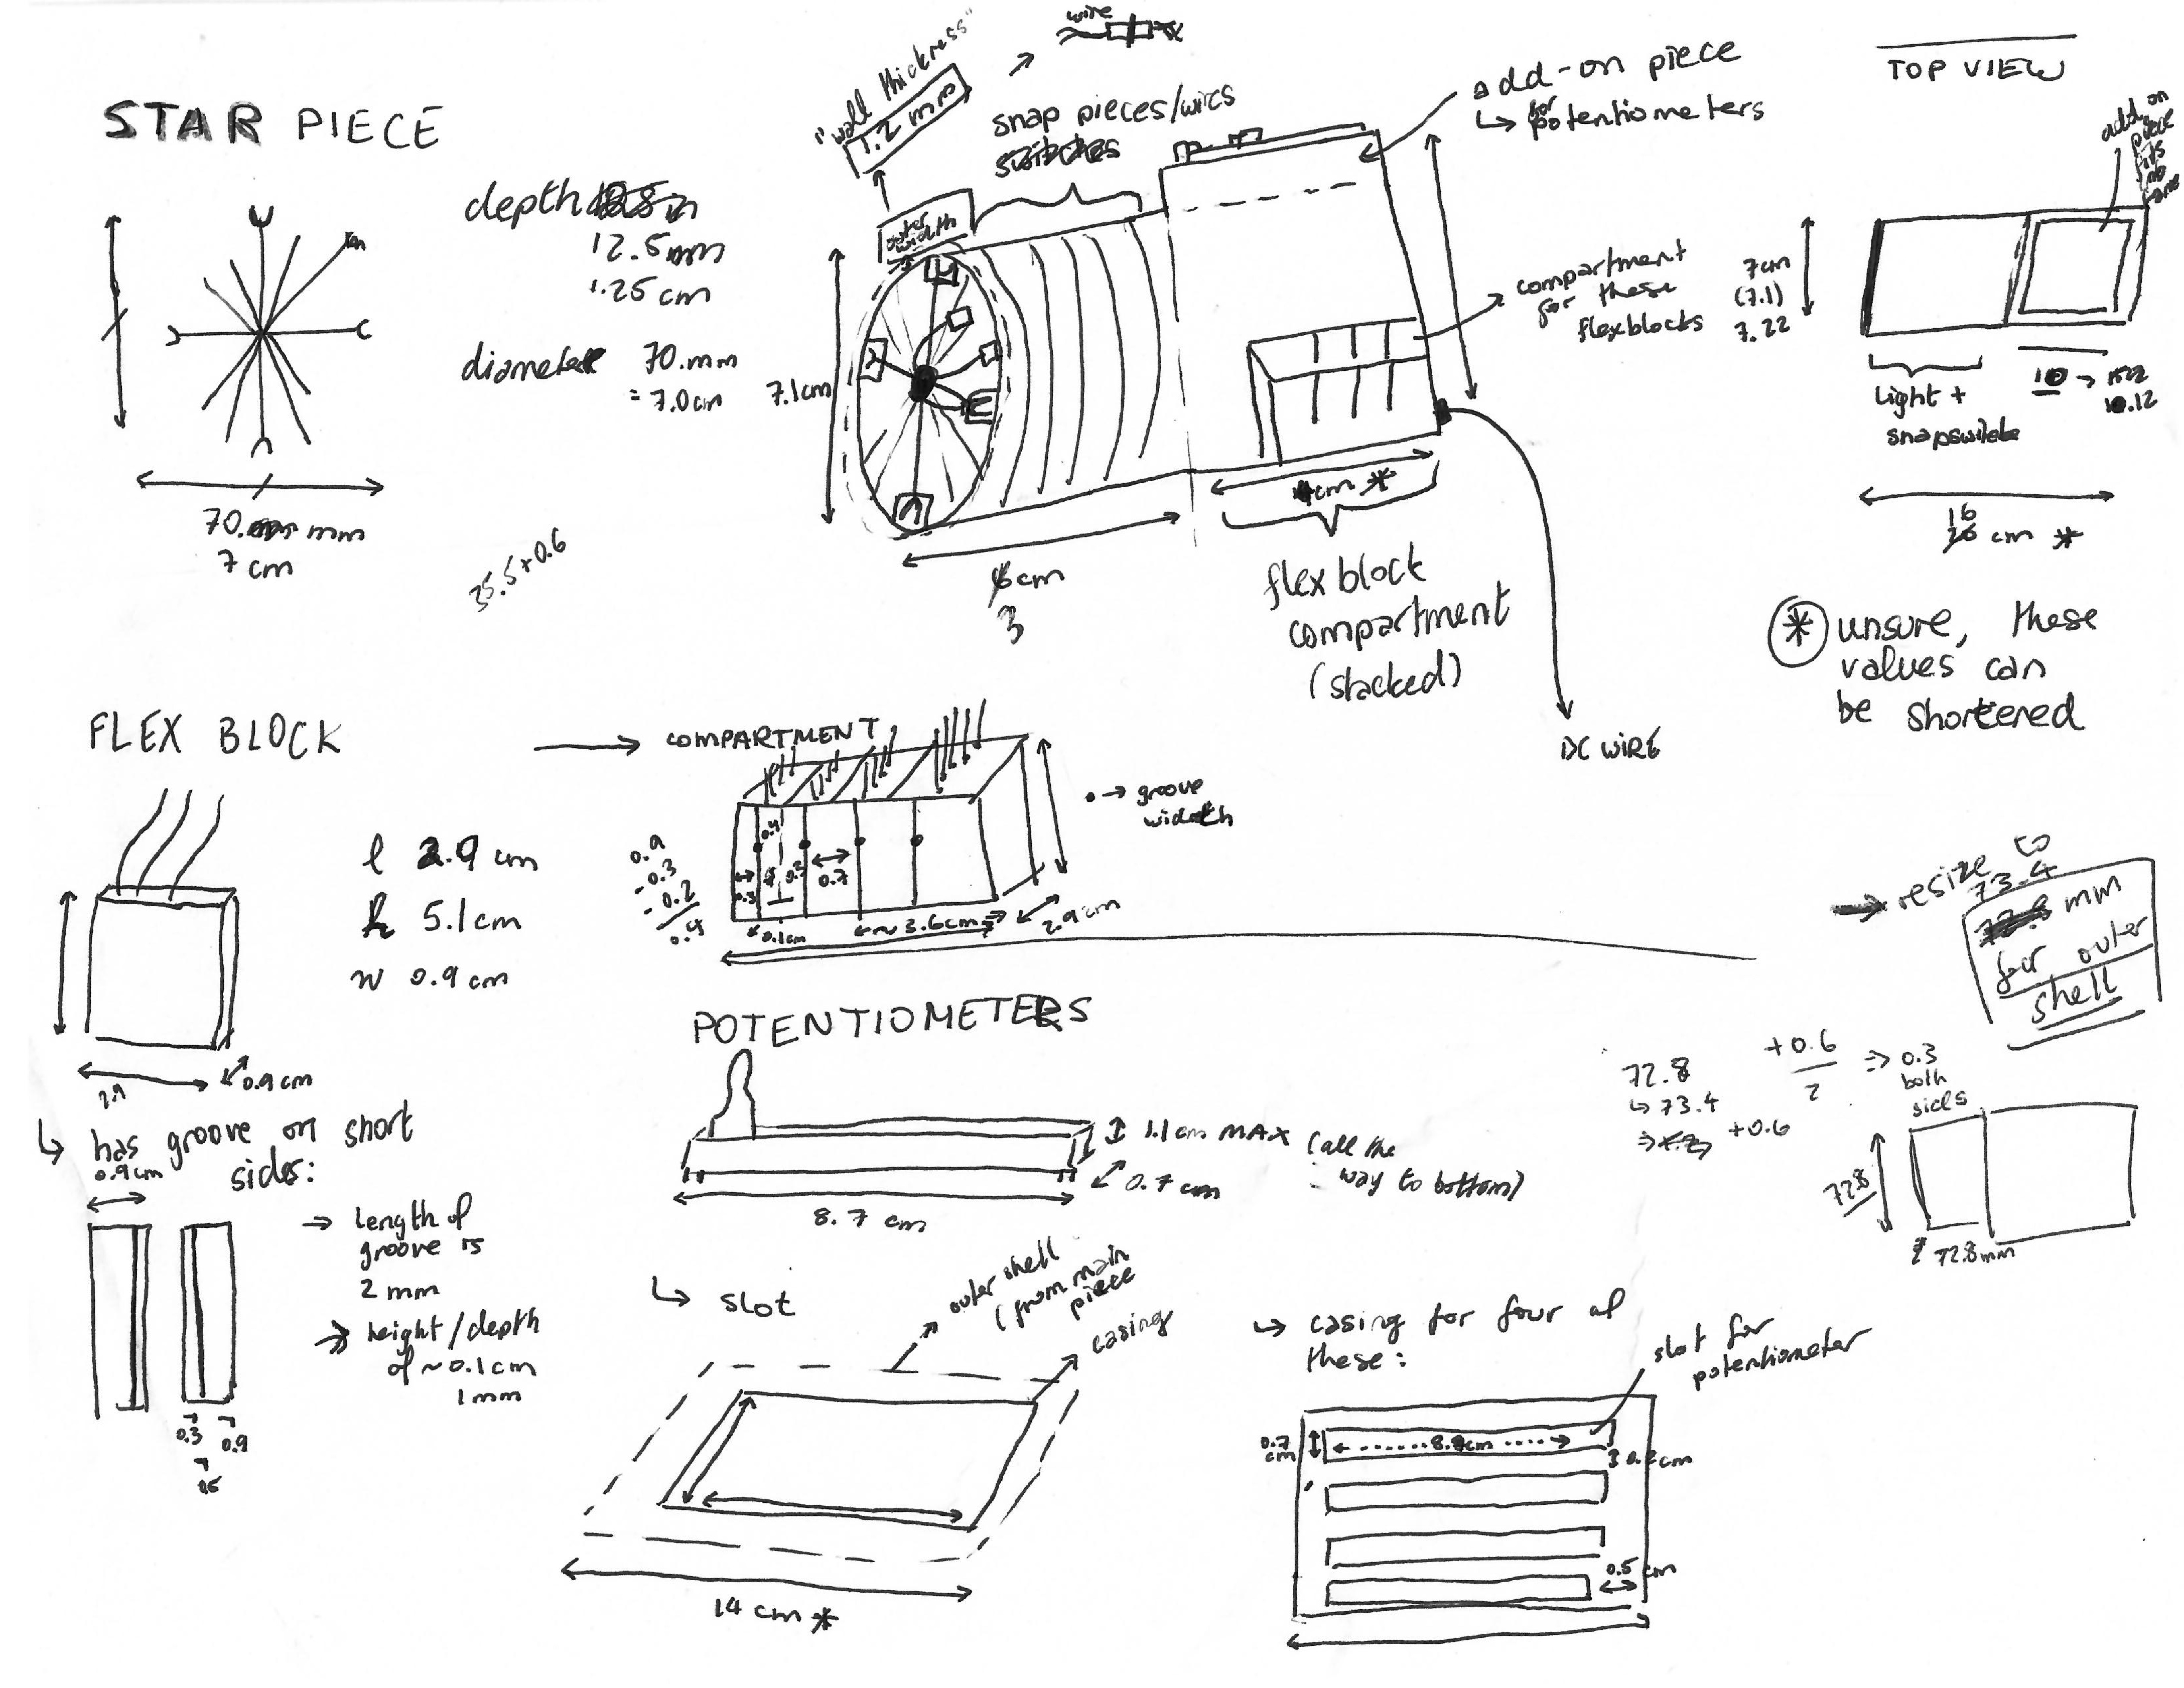 STAR PIECE
70. mm
7 cm
depth
12.5mm
1.25 cm
diameter 70.mm
= 7.0cm
35.5+0.6
"wall thickness"
1.2 mm
wire
snap pieces/wires
switches
outer
width
7.1cm
6cm
3
cm *
flex block
compartment
(stacked)
add-on piece
↳ for potentiometers
compartment
for these
flexblocks
DC WIRE
TOP VIEW
add on
piece
fits
into
7cm
(7.1)
7.22
light +
snapswitch
10 →
10.12
16
cm *
* unsure, these
values can
be shortened
FLEX BLOCK
l 2.9 cm
h 5.1cm
w 0.9 cm
2.9
0.9cm
↳ has groove on short
sides:
0.9cm
⇒ length of
groove is
2 mm
⇒ height/depth
of ~0.1cm
1mm
0.3
0.9
0.5
→ COMPARTMENT
• → groove
width
0.9
-0.3
-0.2
0.4
0.3
0.7
0.1cm
~3.6cm
2.9cm
POTENTIOMETERS
1.1cm MAX (all the
way to bottom)
0.7 cm
8.7 cm
↳ slot
outer shell
(from main
piece
casing
14 cm *
↳ casing for four of
these:
slot for
potentiometer
0.7
cm
0.5 cm
→ resize to
73.4
72.8 mm
for outer
shell
72.8
↳ 73.4
⇒ +0.6
+0.6
2
⇒ 0.3
both
sides
72.8
72.8mm